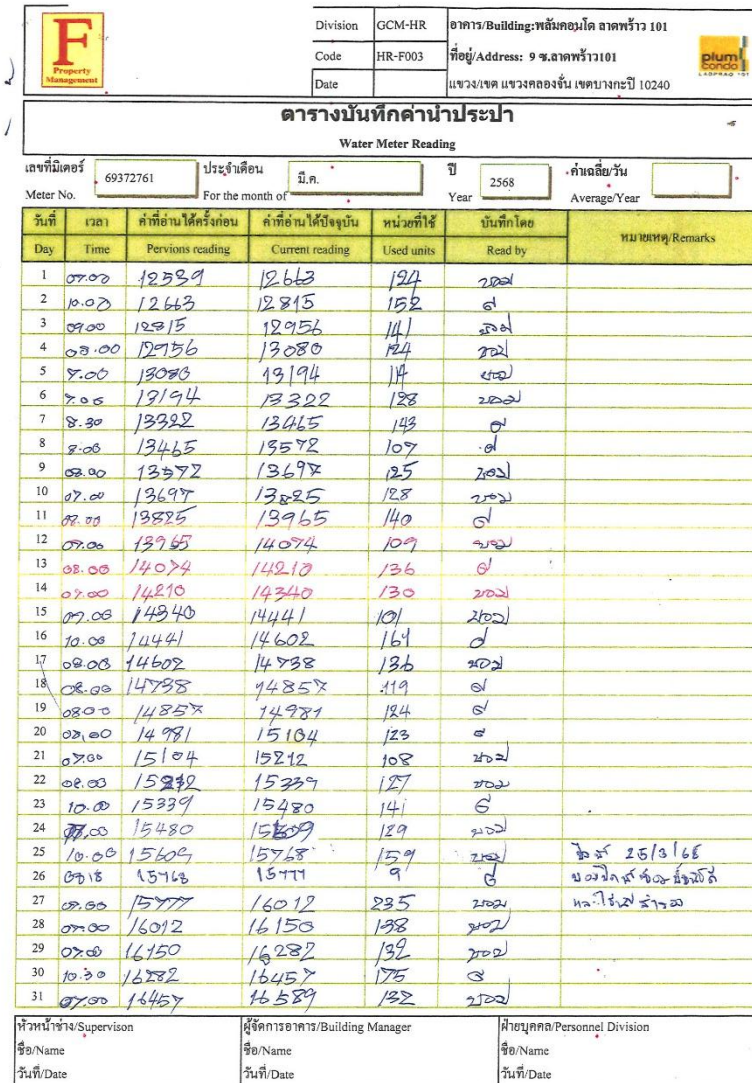 F
Property
Management
Division GCM-HR
Code HR-F003
Date
อาคาร/Building:พลัมคอนโด ลาดพร้าว 101
ที่อยู่/Address: 9 ซ.ลาดพร้าว101
แขวง/เขต แขวงคลองจั่น เขตบางกะปิ 10240
plum
condo
LADPRAO 101
ตารางบันทึกค่าน้ำประปา
Water Meter Reading
เลขที่มิเตอร์ 69372761 ประจำเดือน มี.ค. ปี 2568 ค่าเฉลี่ย/วัน
Meter No. For the month of Year Average/Year
วันที่ เวลา ค่าที่อ่านได้ครั้งก่อน ค่าที่อ่านได้ปัจจุบัน หน่วยที่ใช้ บันทึกโดย หมายเหตุ/Remarks
Day Time Pervions reading Current reading Used units Read by
1 07.00 12539 12663 124
2 10.00 12663 12815 152
3 09.00 12815 12956 141
4 08.00 12956 13080 124
5 7.00 13080 13194 114
6 7.00 13194 13322 128
7 8.30 13322 13465 143
8 8.00 13465 13572 107
9 08.00 13572 13697 125
10 07.00 13697 13825 128
11 08.00 13825 13965 140
12 07.00 13965 14074 109
13 08.00 14074 14210 136
14 07.00 14210 14340 130
15 07.00 14340 14441 101
16 10.00 14441 14602 161
17 08.00 14602 14738 136
18 08.00 14738 14857 119
19 08.00 14857 14981 124
20 08.00 14981 15104 123
21 07.00 15104 15212 108
22 08.00 15212 15339 127
23 10.00 15339 15480 141
24 15480 15609 129
25 10.00 15609 15768 159 25/3/68
26 0818 15768 15777 9
27 07.00 15777 16012 235
28 07.00 16012 16150 138
29 07.00 16150 16282 132
30 10.30 16282 16457 175
31 07.00 16457 16589 132
หัวหน้าช่าง/Supervison ผู้จัดการอาคาร/Building Manager ฝ่ายบุคคล/Personnel Division
ชื่อ/Name ชื่อ/Name ชื่อ/Name
วันที่/Date วันที่/Date วันที่/Date